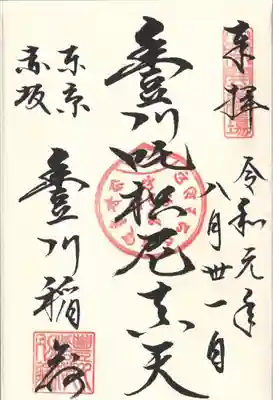 来拝
令和元年
八月丗一日
豊川吒枳尼真天
東京
赤坂
豊川稲荷